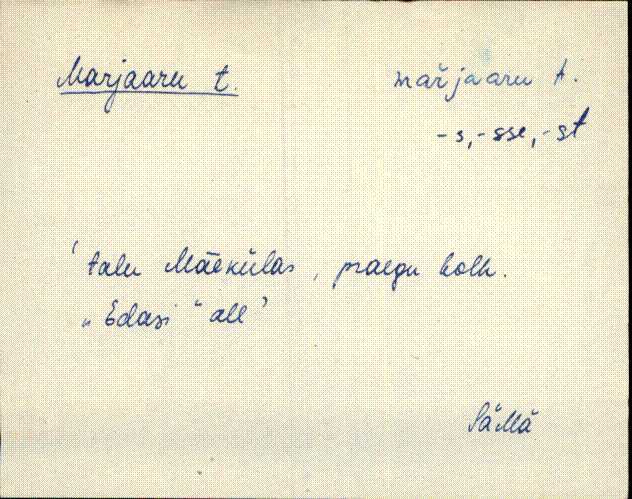 Marjaaru t. mařjaaru t.
-s, -sse, -st
'talu Mäekülas, praegu kolh.
„Edasi“ all'
Sä Mä